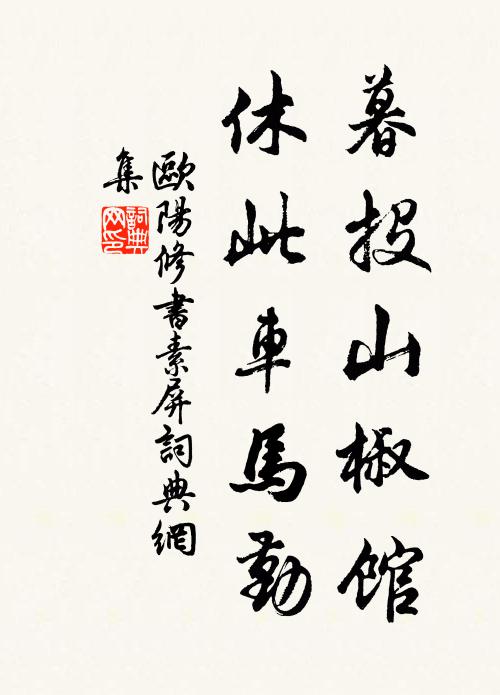 暮投山椒館
休此車馬勤
歐陽修書素屏詞典網
集
詞典
网印